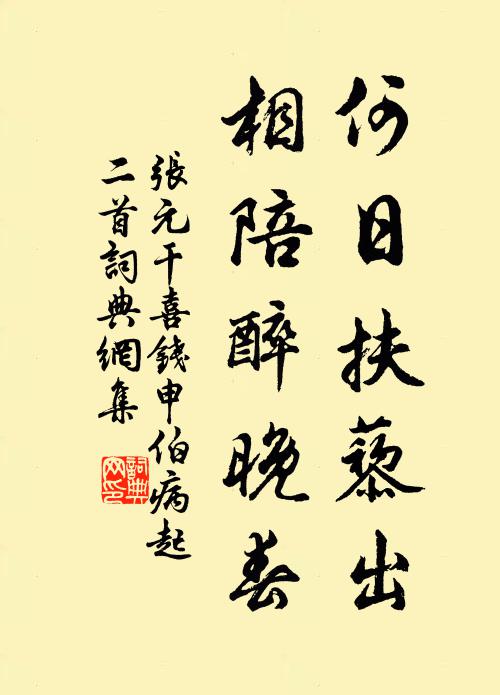 何日扶藜出
相陪醉晚春
張元干喜錢申伯病起
二首詞典網集
詞典網印